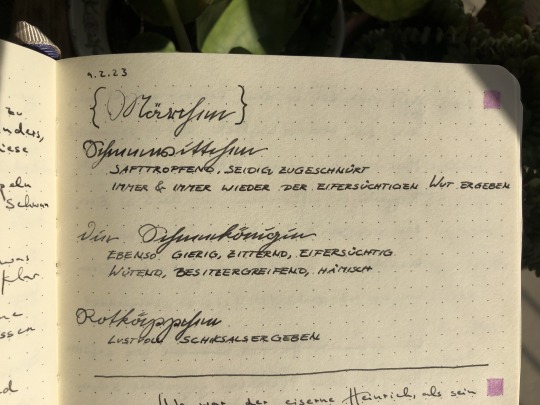 zu
9.2.23
{Märchen}
Schneewittchen
SAFTTROFFEND, SEIDIG ZUGESCHNÜRT
IMMER & IMMER WIEDER DER EIFERSÜCHTIGEN WUT ERGEBEN
Die Schneekönigin
EBENSO GIERIG, ZITTERND, EIFERSÜCHTIG
WÜTEND, BESITZERGREIFEND, HÄMISCH
Rotkäppchen
LUSTVOLL SCHIKSALSERGEBEN
Wo war der eiserne Heinrich, als sein